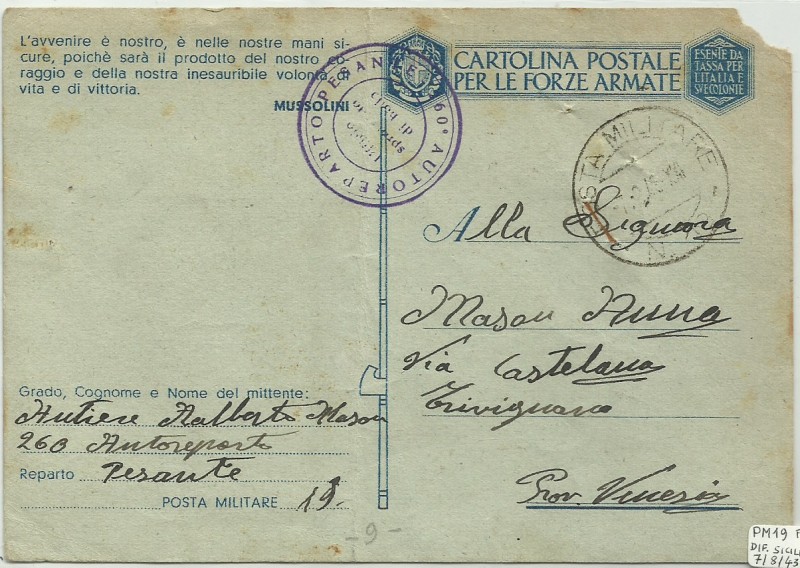 L'avvenire è nostro, è nelle nostre mani si-
cure, poichè sarà il prodotto del nostro co-
raggio e della nostra inesauribile volontà di
vita e di vittoria.
MUSSOLINI
260° AUTOREPARTO PESANTE
CARTOLINA POSTALE
PER LE FORZE ARMATE
ESENTE DA
TASSA PER
L'ITALIA E
SUE COLONIE
POSTA MILITARE
N.
Alla Signora
Mason Anna
Via Castelana
Trivignano
Prov. Venezia
Grado, Cognome e Nome del mittente:
Autiere Aalberto Mason
260 Autoreparto
Reparto Pesante
POSTA MILITARE 19.
-9-
PM19
DIF. SICIL
7/8/43